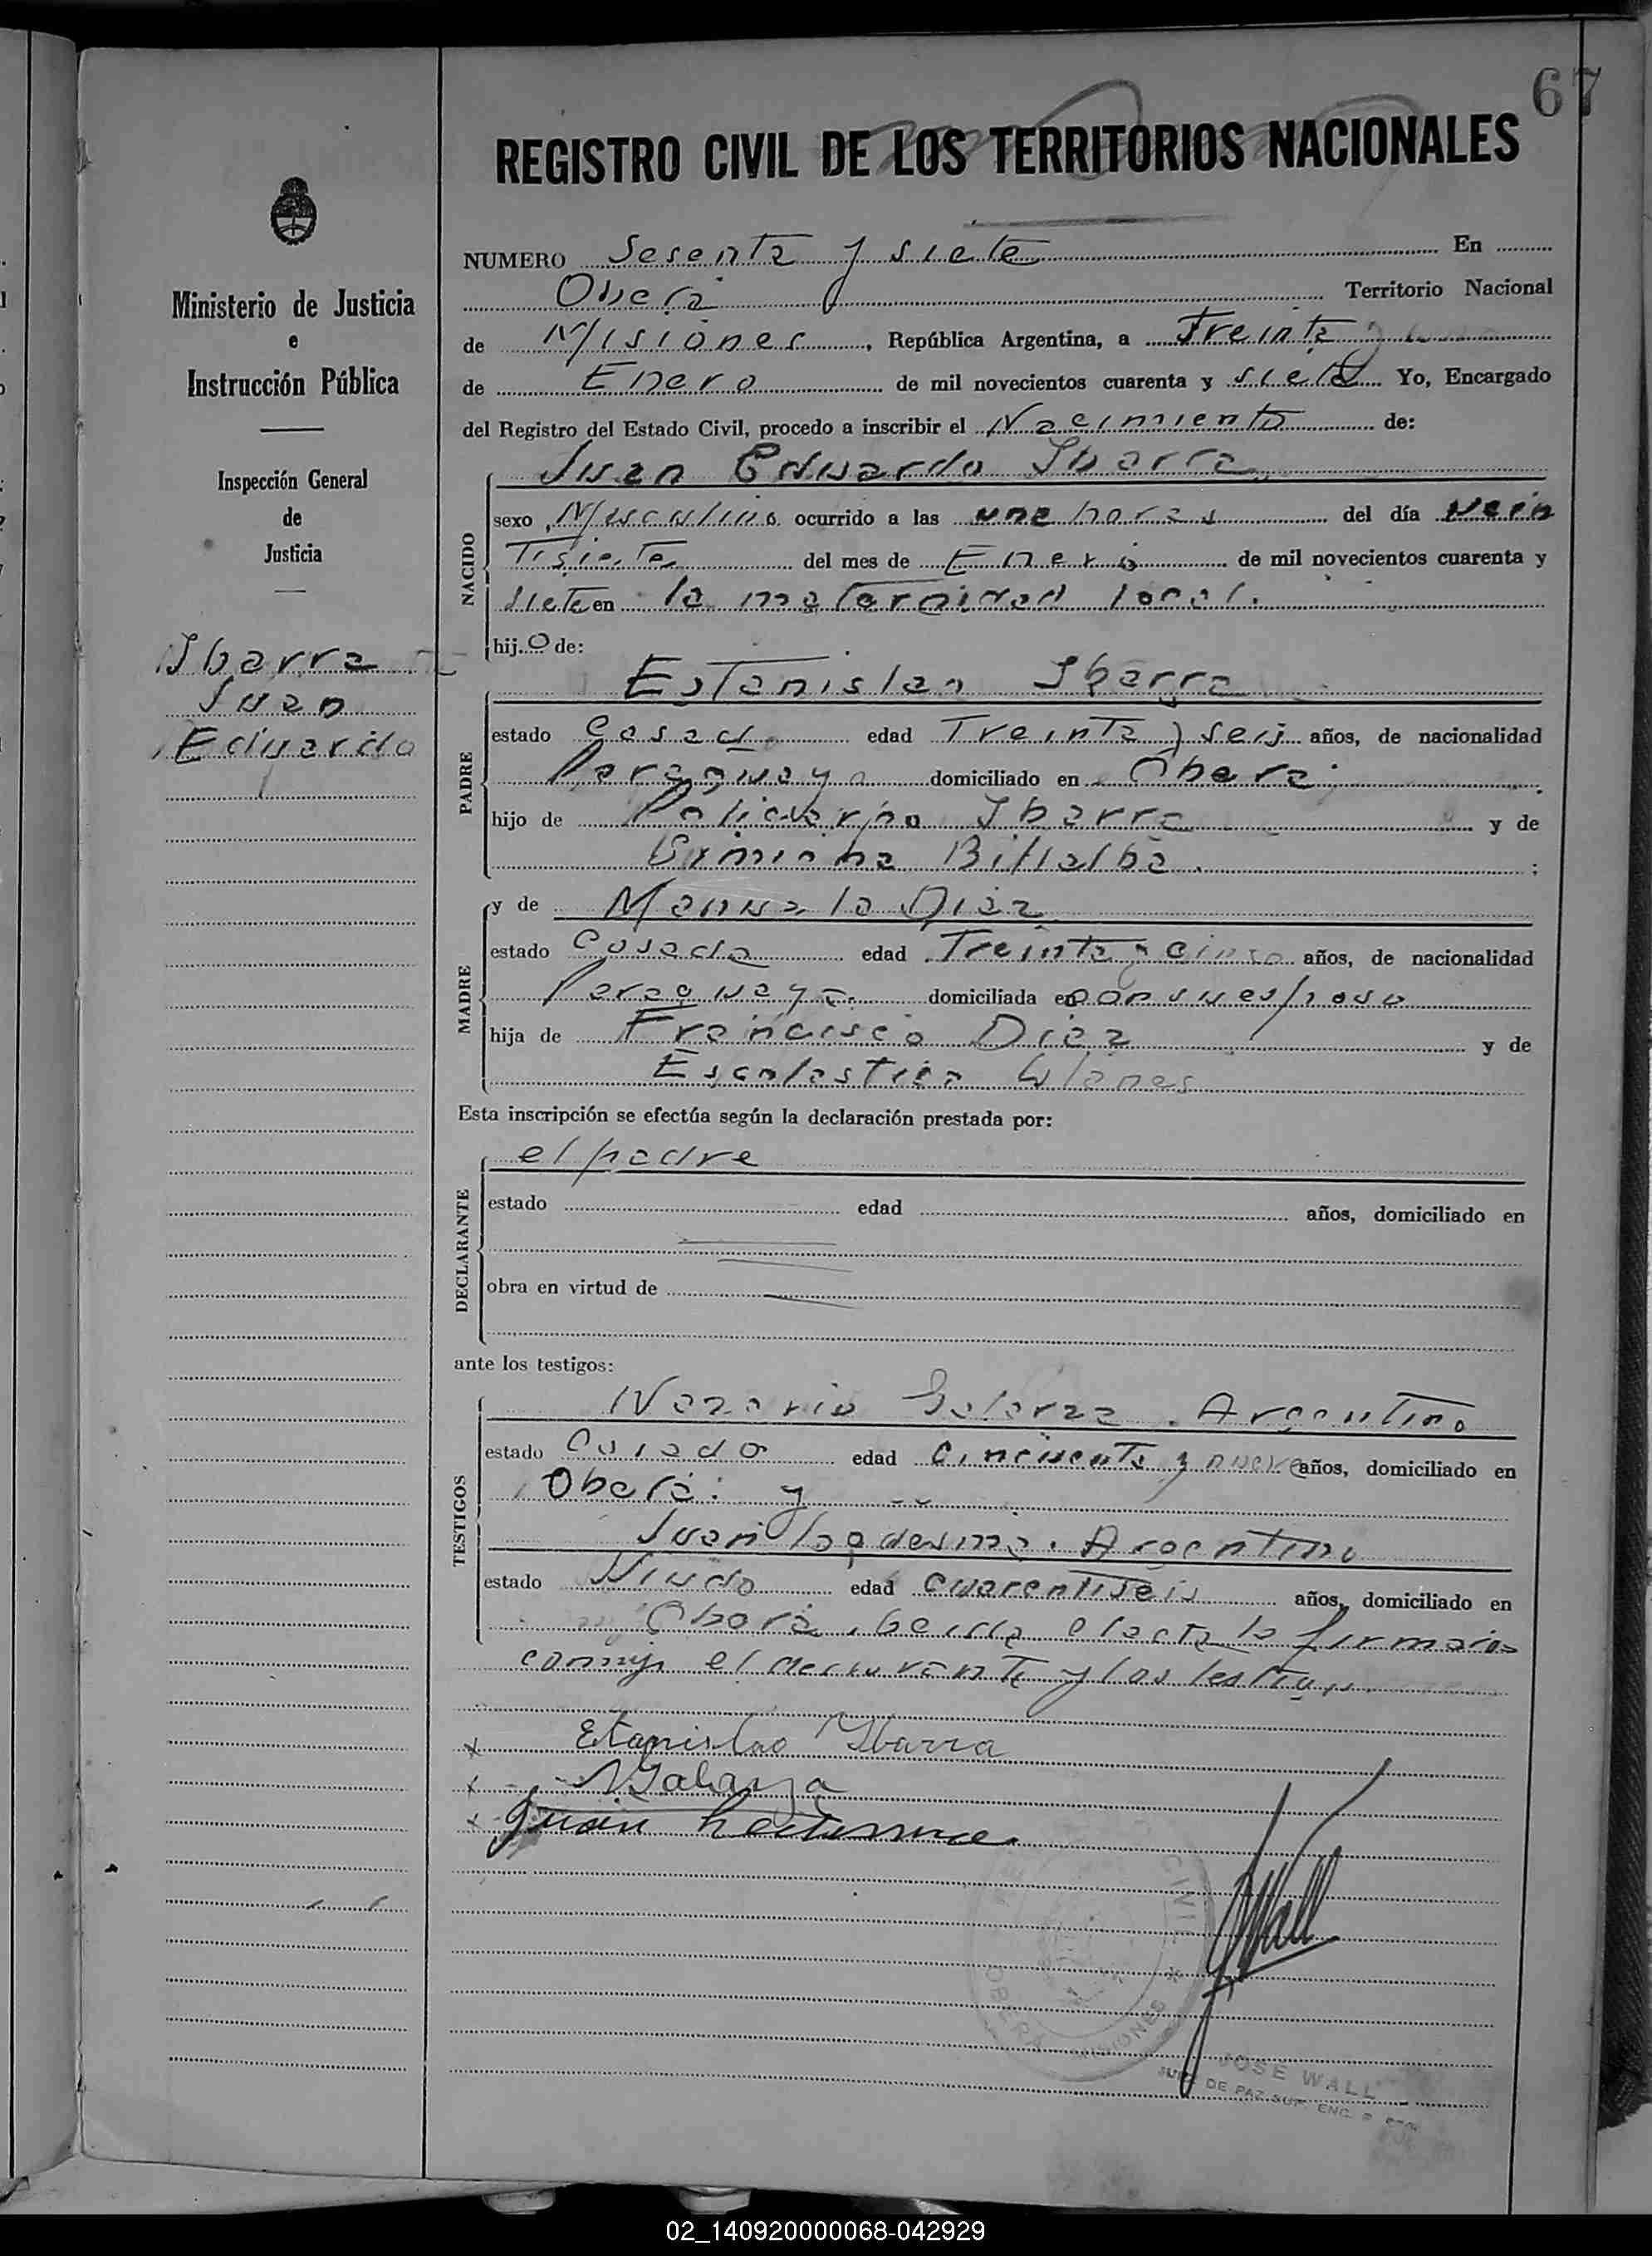 67
REGISTRO CIVIL DE LOS TERRITORIOS NACIONALES
Ministerio de Justicia
e
Instrucción Pública
Inspección General
de
Justicia
Ibarra
Juan
Eduardo
NUMERO Sesenta y siete En
Oberá Territorio Nacional
de Misiones, República Argentina, a Treinta y
de Enero de mil novecientos cuarenta y siete Yo, Encargado
del Registro del Estado Civil, procedo a inscribir el Nacimiento de:
NACIDO
Juan Eduardo Ibarra
sexo Masculino ocurrido a las una horas del día vein
tisiete del mes de Enero de mil novecientos cuarenta y
siete en la maternidad local.
hijo de:
PADRE
Estanislao Ibarra
estado Casado edad Treinta y seis años, de nacionalidad
Paraguaya domiciliado en Oberá
hijo de Ibarra y de
Billalba ;
MADRE
y de Manuela Diaz
estado Casada edad Treinta y cinco años, de nacionalidad
Paraguaya domiciliada en con su esposo
hija de Francisco Diaz y de
Escolastica
Esta inscripción se efectúa según la declaración prestada por:
DECLARANTE
el padre
estado edad años, domiciliado en
obra en virtud de
ante los testigos:
TESTIGOS
Nazario Galarza. Argentino
estado Casado edad cincuenta y nueve años, domiciliado en
Oberá: y
Juan Ledesma. Argentino
estado Viudo edad cuarentiseis años, domiciliado en
Oberá, leida el acta la firmaron
conmigo el declarante y los testigos.
x Etanislao Ybarra
x NGalarza
x Juan Ledesma
JWall
CIVIL
OBERÁ * MISIONES
JOSE WALL
JUEZ DE PAZ SUP. ENC.
02_140920000068-042929